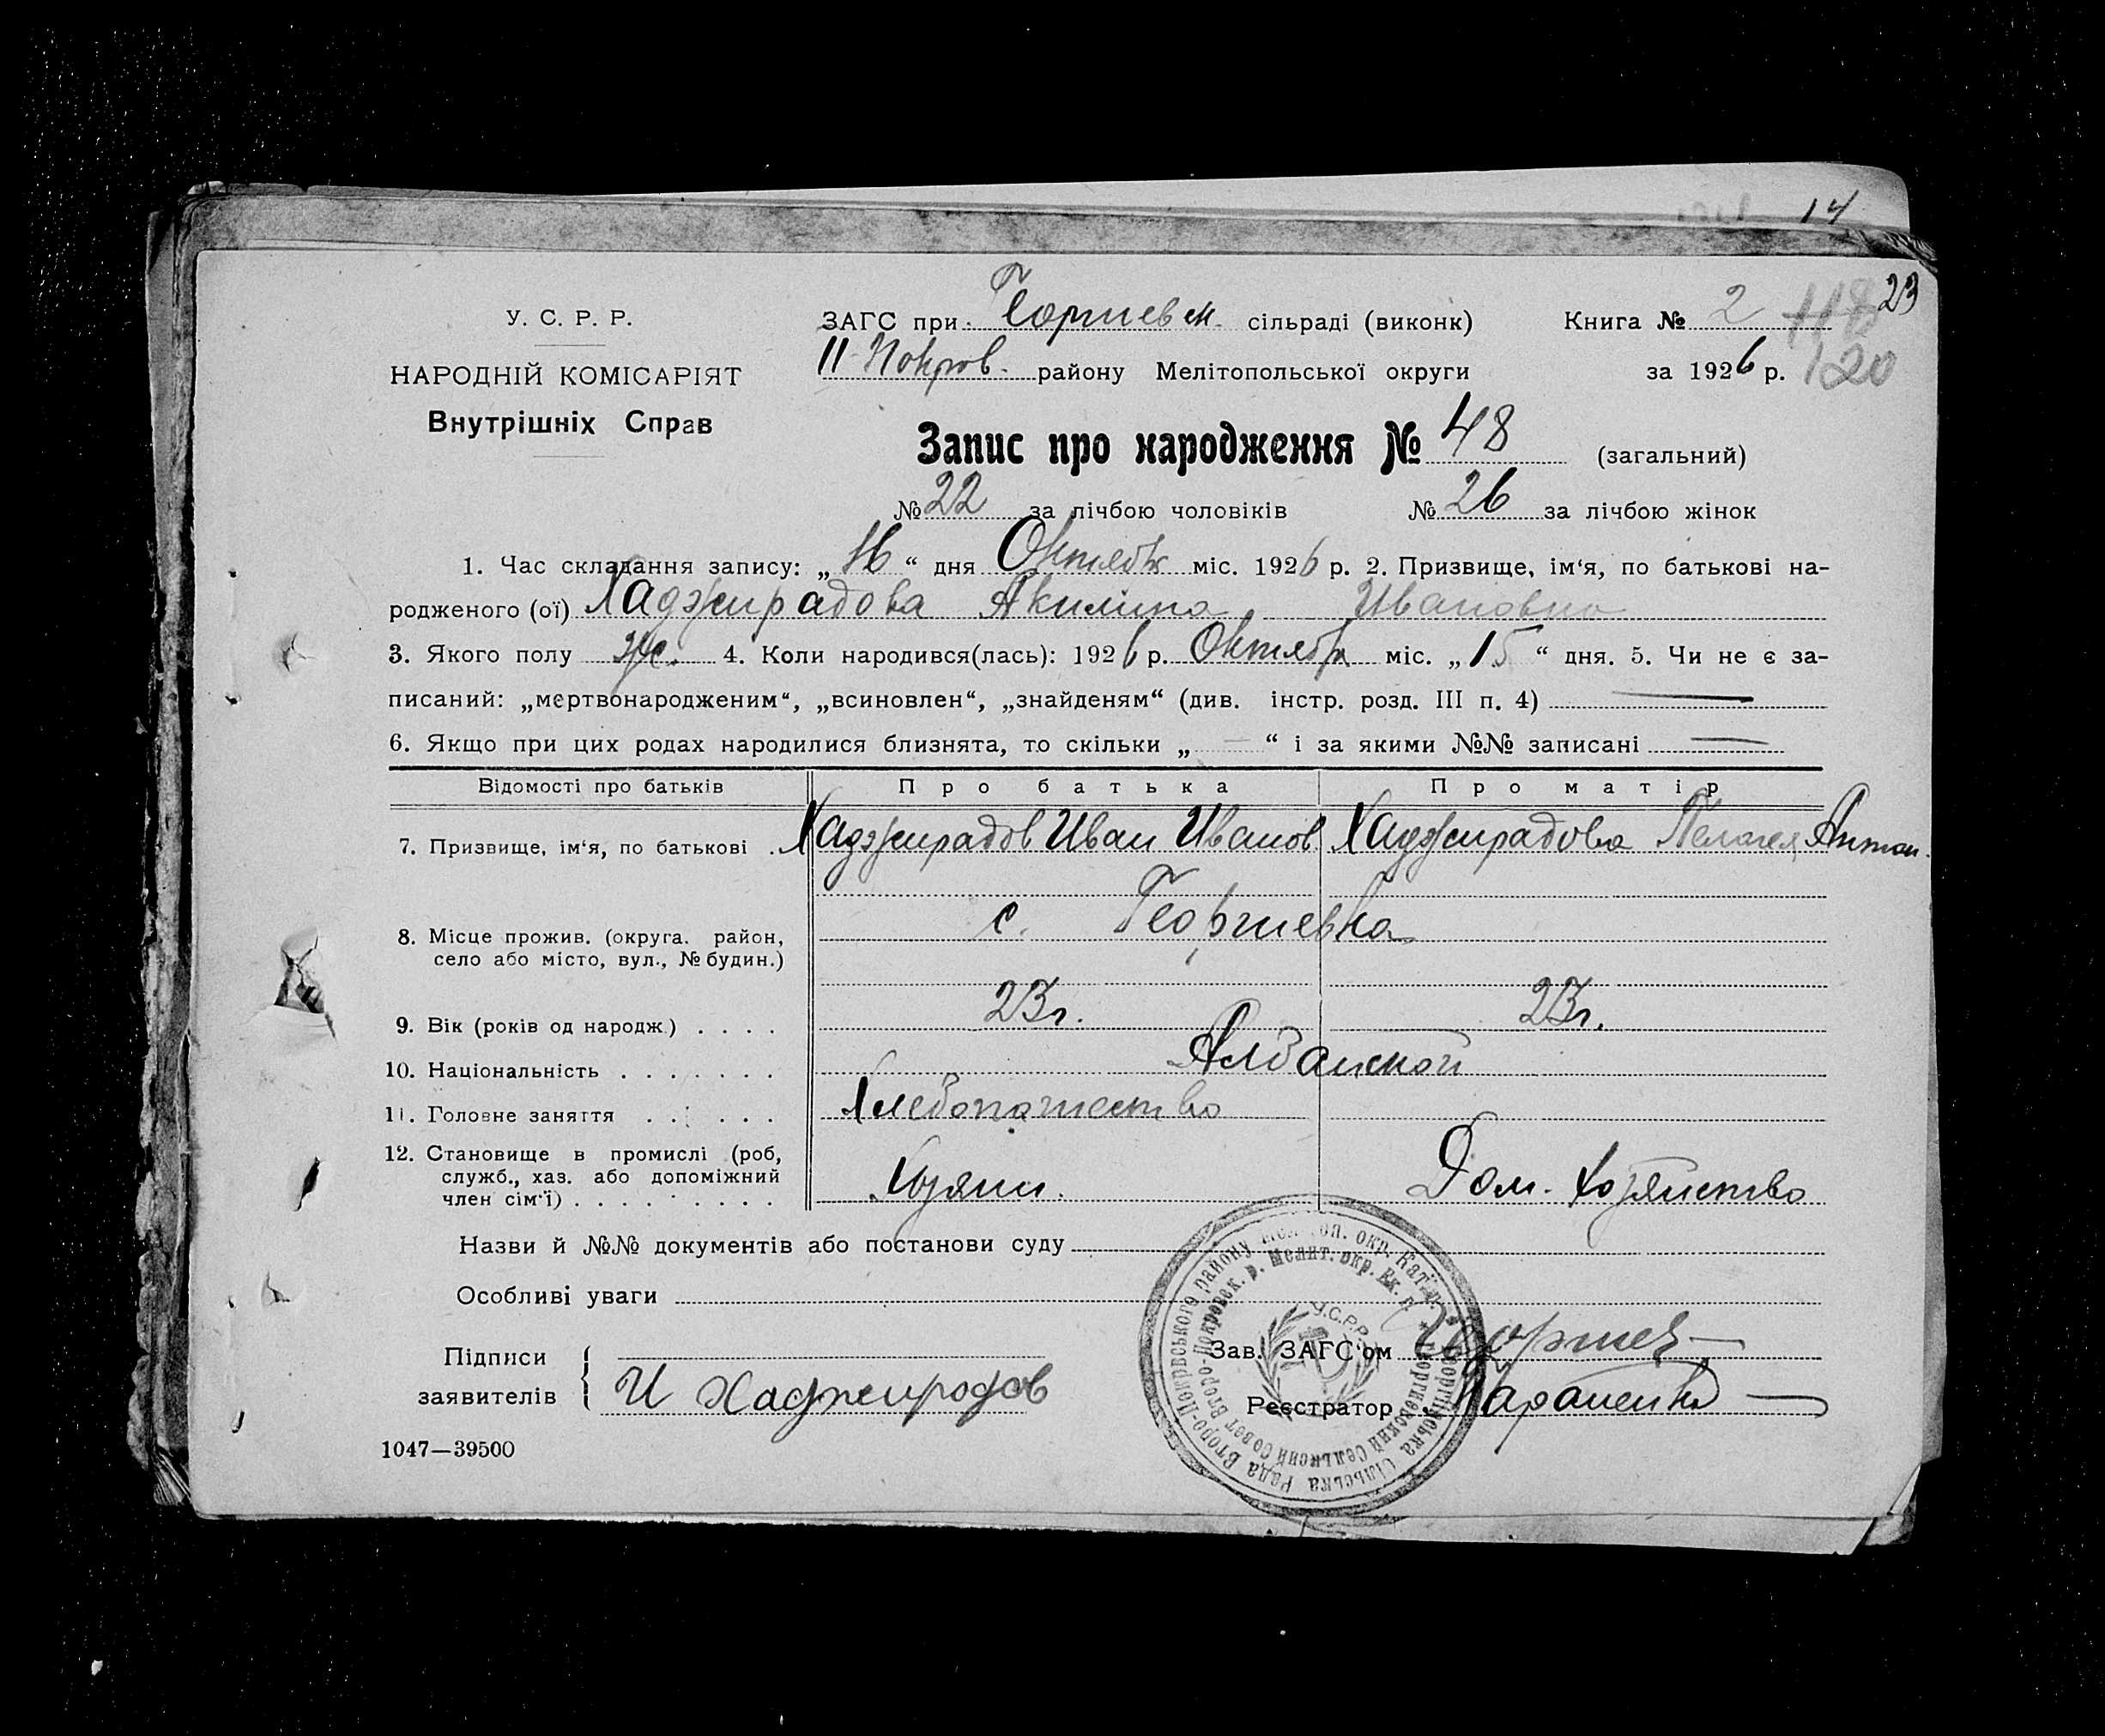 14
23
У. С. Р. Р.
НАРОДНІЙ КОМІСАРІЯТ
Внутрішніх Справ
ЗАГС при Георгиевск. сільраді (виконк) Книга № 2 118
II-Покров. району Мелітопольської округи за 1926 р. 120
Запис про народження № 48 (загальний)
№ 22 за лічбою чоловіків № 26 за лічбою жінок
1. Час складання запису: „16“ дня Октября міс. 1926 р. 2. Призвище, ім‘я, по батькові на-
родженого (ої) Хаджирадова Акилина Ивановна
3. Якого полу ж. 4. Коли народився(лась): 1926 р. Октября міс. „15“ дня. 5. Чи не є за-
писаний: „мертвонародженим“, „всиновлен“, „знайденям“ (див. інстр. розд. III п. 4) —
6. Якщо при цих родах народилися близнята, то скільки „—“ і за якими №№ записані —
Відомості про батьків Про батька Про матір
7. Призвище, ім‘я, по батькові . Хаджирадов Иван Иванов. Хаджирадова Пелагея Антон.
8. Місце прожив. (округа. район, с. Георгиевка
село або місто, вул., № будин.)
9. Вік (років од народж.) . . . . 23 г. 23 г.
10. Національність . . . . . . . Албанской
11. Головне заняття . . . . . . Хлебопашество
12. Становище в промислі (роб,
служб., хаз. або допоміжний Хозяин. Дом. Хозяйство
член сім‘ї) . . . . . . . . .
Назви й №№ документів або постанови суду
Особливі уваги
Підписи
заявителів И Хаджирадов
Зав. ЗАГС‘ом
Реєстратор
У.С.Р.Р.
1047—39500